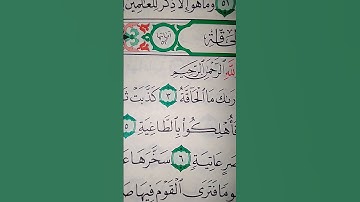 وَمَا هُوَ إِلَّا ذِكْرٌ لِّلْعَالَمِينَ ٥١
حَاقَّة آيَاتُهَا ٥٢
للَّهِ الرَّحْمَٰنِ الرَّحِيمِ
رَىٰكَ مَا الْحَاقَّةُ ٣ كَذَّبَتْ
فَأُهْلِكُوا بِالطَّاغِيَةِ ٥
صَرٍ عَاتِيَةٍ ٦ سَخَّرَهَا عَ
ومًا فَتَرَى الْقَوْمَ فِيهَا صَ